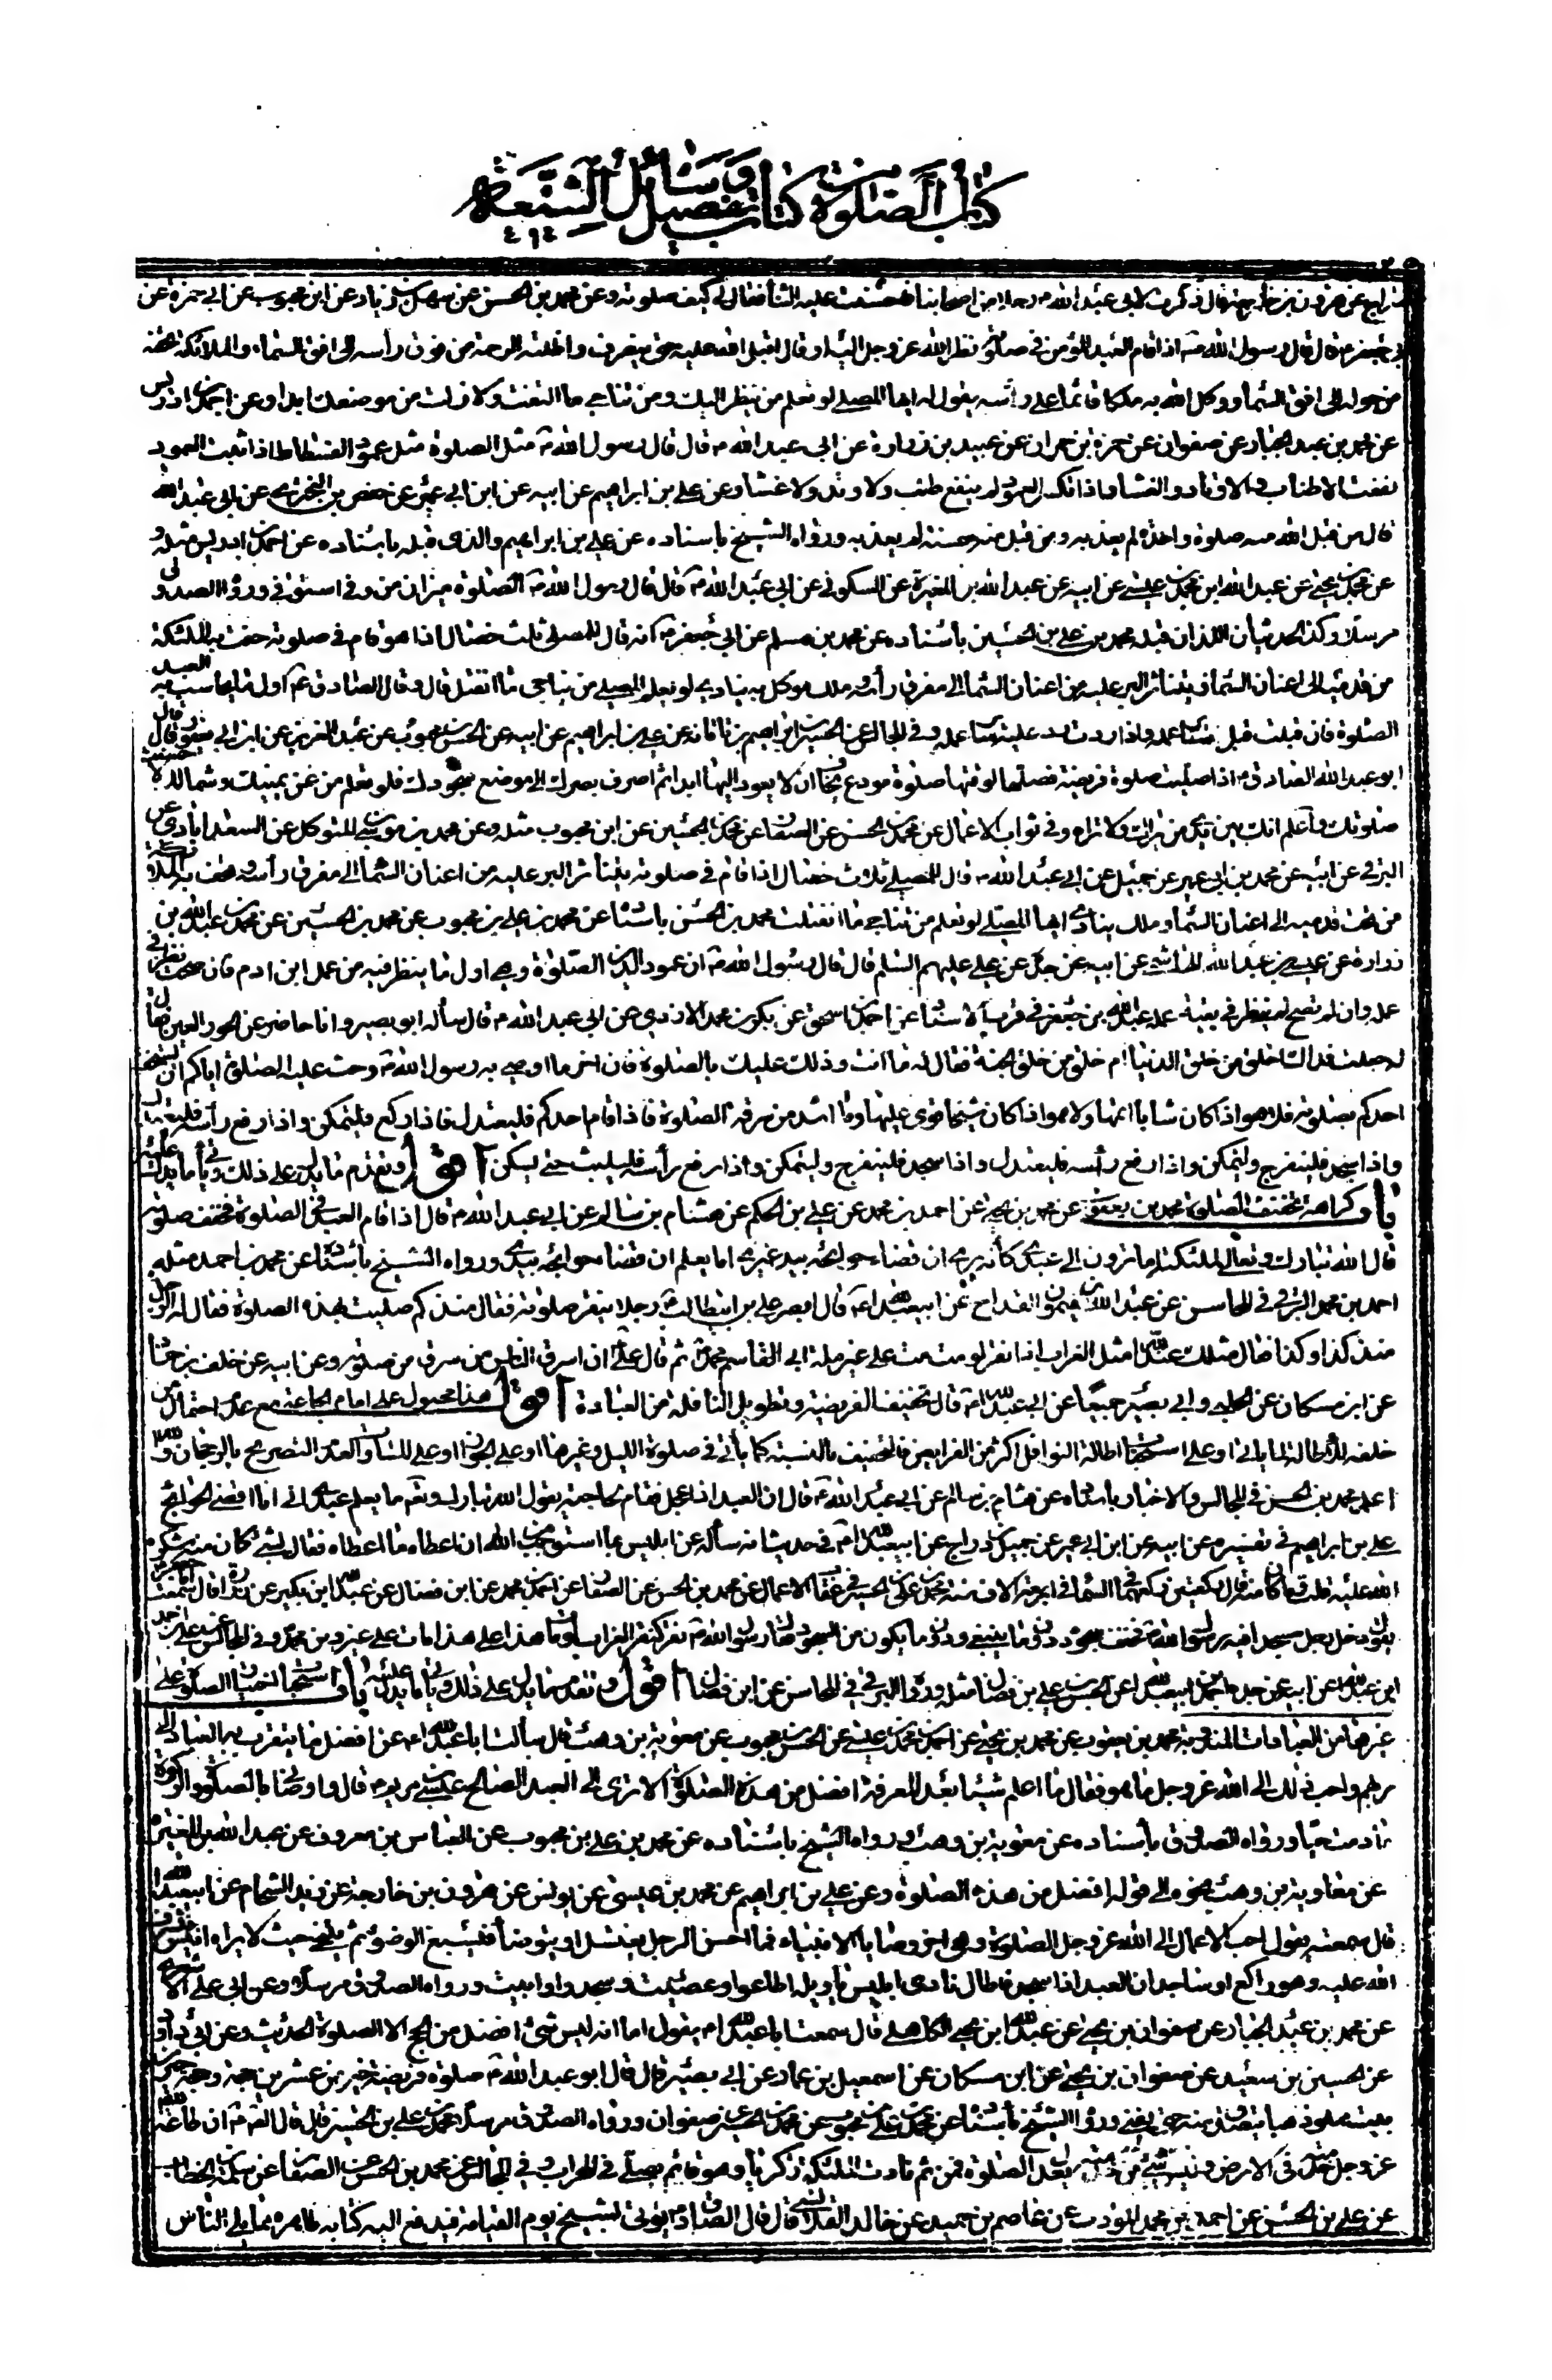 كتاب الصلوة كتاب تفصيل وسائل الشيعة
دراج عن هرون بن خارجة قال ذكرت لابي عبد الله م رجلا من اصحابنا فاحسنت عليه الثنا فقال لي كيف صلوته وعن محمد بن الحسن عن سهل بن زياد عن ابن محبوب عن ابي حمزة عن
ابي جعفر م قال قال رسول الله ص اذا قام العبد المؤمن في صلوته نظر الله عز وجل اليه او قال اقبل الله عليه حتى ينصرف واظلته الرحمة من فوق رأسه الى افق السماء والملائكة تحفه
من حوله الى افق السماء ووكل الله به ملكا قائما على رأسه يقول له ايها المصلي لو تعلم من ينظر اليك ومن تناجي ما التفت ولا زلت من موضعك ابدا وعن احمد بن ادريس
عن محمد بن عبد الجبار عن صفوان عن حمزة بن حمران عن عبيد بن زرارة عن ابي عبد الله م قال قال رسول الله ص مثل الصلوة مثل عمود الفسطاط اذا ثبت العمود
نفعت الاطناب والاوتاد والغشاء واذا انكسر العمود لم ينفع طنب ولا وتد ولا غشاء وعن علي بن ابراهيم عن ابيه عن ابن ابي عمير عن حفص بن البختري عن ابي عبد الله
قال من قبل الله منه صلوة واحدة لم يعذبه ومن قبل منه حسنة لم يعذبه ورواه الشيخ باسناده عن علي بن ابراهيم والذي قبله باسناده عن احمد بن ادريس مثله و
عن محمد بن يحيى عن عبد الله ابن محمد بن عيسى عن ابيه عن عبد الله بن المغيرة عن السكوني عن ابي عبد الله م قال قال رسول الله ص الصلوة ميزان من وفى استوفى ورواه الصدوق
مرسلا وكذا الحديثان اللذان قبله محمد بن علي بن الحسين باسناده عن محمد بن مسلم عن ابي جعفر م انه قال للمصلي ثلث خصال اذا هو قام في صلوته حفت به الملئكة
من قدميه الى اعنان السماء ويتناثر البر عليه من اعنان السماء الى مفرق رأسه وملك موكل به ينادي لو يعلم المصلي من يناجي ما انفتل قال وقال الصادق ع اول ما يحاسب به العبد
الصلوة فان قبلت قبل سائر عمله واذا ردت عليه سائر عمله وفي المجالس عن الحسين بن ابراهيم بن ناتانه عن علي بن ابراهيم عن ابيه عن الحسن بن محبوب عن عبد العزيز عن ابن ابي يعفور قال قال
ابو عبد الله الصادق م اذا صليت صلوة فريضة فصلها لوقتها صلوة مودع يخاف ان لا يعود اليها ابدا ثم اصرف بصرك الى موضع سجودك فلو تعلم من عن يمينك وشمالك لاحسنت
صلوتك واعلم انك بين يدي من يراك ولا تراه وفي ثواب الاعمال عن محمد بن الحسن عن الصفار عن محمد بن الحسين عن ابن محبوب مثله وعن محمد بن موسى بن المتوكل عن السعدابادي عن
البرقي عن ابيه عن محمد بن ابي عمير عن جميل عن ابي عبد الله م قال للمصلي ثلاث خصال اذا قام في صلوته يتناثر البر عليه من اعنان السماء الى مفرق رأسه وتحف به الملائكة
من تحت قدميه الى اعنان السماء وملك ينادي ايها المصلي لو تعلم من تناجي ما انفتلت محمد بن الحسن باسناده عن محمد بن علي بن محبوب عن محمد بن الحسين عن محمد بن عبد الله بن
زرارة عن عيسى بن عبد الله الهاشمي عن ابيه عن جده عن علي عليهم السلم قال قال رسول الله ص ان عمود الدين الصلوة وهي اول ما ينظر فيه من عمل ابن ادم فان صحت نظر في
عمله وان لم تصح لم ينظر في بقية عمله عبد الله بن جعفر في قرب الاسناد عن احمد بن اسحق عن بكر بن محمد الازدي عن ابي عبد الله م قال سأله ابو بصير وانا حاضر عن الحور العين فقال
له جعلت فداك اخلق من خلق الدنيا ام خلق من خلق الجنة فقال له ما انت وذلك عليك بالصلوة فان اخر ما اوصى به رسول الله ص وحث عليه الصلوة اياكم ان يستخف
احدكم بصلوته فلا هو اذا كان شابا اتمها ولا هو اذا كان شيخا قوي عليها وما اشد من سرقة الصلوة فاذا قام احدكم فليعتدل فاذا ركع فليتمكن واذا رفع رأسه فليعتدل
واذا سجد فلينفرج وليتمكن واذا رفع رأسه فليعتدل واذا سجد فلينفرج وليتمكن واذا رفع رأسه فليلبث حتى يسكن اقول وتقدم ما يدل على ذلك ويأتي ما يدل عليه
باب كراهة تخفيف الصلوة محمد بن يعقوب عن محمد بن يحيى عن احمد بن محمد عن علي بن الحكم عن هشام بن سالم عن ابي عبد الله م قال اذا قام العبد في الصلوة فخفف صلوته
قال الله تبارك وتعالى لملئكته اما ترون الى عبدي كأنه يرى ان قضاء حوائجه بيد غيري اما يعلم ان قضاء حوائجه بيدي ورواه الشيخ باسناده عن محمد بن احمد مثله
احمد بن محمد البرقي في المحاسن عن عبد الله بن ميمون القداح عن ابي عبد الله ع قال ابصر علي بن ابيطالب رجلا ينقر صلوته فقال منذ كم صليت بهذه الصلوة فقال له الرجل
منذ كذا وكذا فقال مثلك عند الله مثل الغراب اذا نقر لو مت مت على غير ملة ابي القاسم محمد ص ثم قال علي ع ان اسرق الناس من سرق من صلوته وعن ابيه عن خلف بن حماد
عن ابن مسكان عن الحلبي وابي بصير جميعا عن ابي عبد الله ع قال تخفيف الفريضة وتطويل النافلة من العبادة اقول هذا محمول على امام الجماعة مع عدم احتمال من
خلفه للاطالة لما يأتي او على استحباب اطالة النوافل اكثر من الفرايض فالتخفيف بالنسبة كما يأتي في صلوة الليل وغيرها او على الجواز او على المساواة لعدم التصريح بالرجحان والله
اعلم محمد بن الحسن في المجالس والاخبار باسناده عن هشام بن سالم عن ابي عبد الله ع قال ان العبد اذا عجل فقام لحاجته يقول الله تبارك وتعه ما يعلم عبدي اني انا اقضي الحوائج
علي بن ابراهيم في تفسيره عن ابيه عن ابن ابي عمير عن جميل بن دراج عن ابي عبد الله ع في حديث انه سأله عن ابليس بما استوجب الله ان اعطاه ما اعطاه فقال بشيء كان منه شكره
الله عليه قلت وما كان منه قال ركعتين ركعهما في السماء في اربعة الاف سنة محمد بن علي بن الحسين في عقاب الاعمال عن محمد بن الحسن عن الصفار عن احمد بن محمد عن ابن فضال عن عبد الله ابن بكير عن زرارة قال سمعت ابا جعفر
يقول دخل رجل مسجدا فيه رسول الله ص فخفف سجوده دون ما ينبغي ودون ما يكون من السجود فقال رسول الله ص نقر كنقر الغراب لو مات هذا على هذا مات على غير دين محمد وفي المجالس عن علي بن احمد
ابن عبد الله عن ابيه عن جده احمد بن ابي عبد الله عن الحسن بن علي بن فضال مثله ورواه البرقي في المحاسن عن ابن فضال اقول وتقدم ما يدل على ذلك ويأتي ما يدل عليه باب استحباب اختيار الصلوة على
غيرها من العبادات المندوبة محمد بن يعقوب عن محمد بن يحيى عن احمد بن محمد بن عيسى عن الحسن بن محبوب عن معوية بن وهب قال سألت ابا عبد الله ع عن افضل ما يتقرب به العباد الى
ربهم واحب ذلك الى الله عز وجل ما هو فقال ما اعلم شيئا بعد المعرفة افضل من هذه الصلوة الا ترى الى العبد الصالح عيسى بن مريم قال واوصاني بالصلوة والزكوة
ما دمت حيا ورواه الصدوق باسناده عن معوية بن وهب ورواه الشيخ باسناده عن محمد بن علي بن محبوب عن العباس بن معروف عن عبد الله بن المغيرة
عن معاوية بن وهب نحوه الى قوله افضل من هذه الصلوة وعن علي بن ابراهيم عن محمد بن عيسى عن يونس عن هرون بن خارجة عن زيد الشحام عن ابي عبد الله
قال سمعته يقول احب الاعمال الى الله عز وجل الصلوة وهي اخر وصايا الانبياء فما احسن الرجل يغتسل او يتوضأ فليسبغ الوضوء ثم يتنحى حيث لا يراه انيس فيشرف
الله عليه وهو راكع او ساجد ان العبد اذا سجد فاطال نادى ابليس يا ويله اطاعوا وعصيت وسجدوا وابيت ورواه الصدوق مرسلا وعن ابي علي الاشعري
عن محمد بن عبد الجبار عن صفوان بن يحيى عن عبد الله ابن يحيى الكاهلي قال سمعت ابا عبد الله ع يقول اما انه ليس شيء افضل من الحج الا الصلوة الحديث وعن ابي داود
عن الحسين بن سعيد عن صفوان بن يحيى عن ابن مسكان عن اسمعيل بن عمار عن ابي بصير قال قال ابو عبد الله م صلوة فريضة خير من عشرين حجة وحجة خير من
بيت مملو ذهبا يتصدق منه حتى يفنى ورواه الشيخ باسناده عن محمد بن علي بن محبوب عن محمد بن الحسين عن صفوان ورواه الصدوق مرسلا محمد بن علي بن الحسين قال قال الصادق م ان طاعة الله
عز وجل خدمته في الارض وليس شيء من خدمته يعدل الصلوة فمن ثم نادت الملئكة زكريا وهو قائم يصلي في المحراب وفي المجالس عن محمد بن الحسن عن الصفار عن سلمة بن الخطاب
عن علي بن الحسن عن احمد بن محمد المؤدب عن عاصم بن حميد عن خالد القلانسي قال قال الصادق م يؤتى بشيخ يوم القيامة فيدفع اليه كتابه ظاهره مما يلي الناس